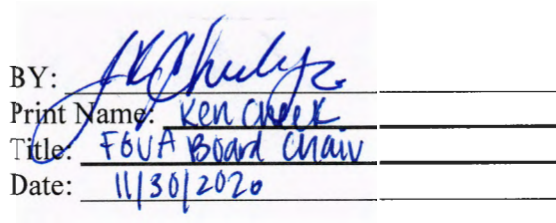 BY:
Print Name: Ken Cheek
Title: FGUA Board Chair
Date: 11/30/2020